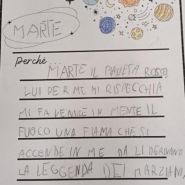 MARTE
Perché
MARTE IL PIANETA ROSSO
LUI PER ME MI RISPECCHIA
MI FA VENIRE IN MENTE IL
FUOCO UNA FIAMA CHE SI
ACCENDE IN ME DA LÌ DERIVANO
LA LEGGENDA DEI MARZIANI